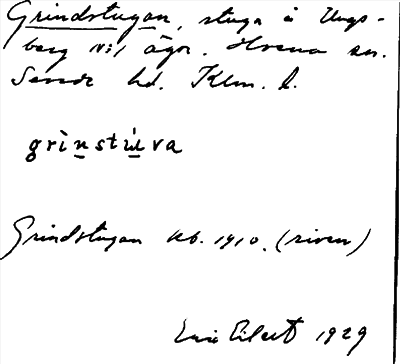 Grindstugan, stuga å Ungs-
berg No 1 ägor. Hvena sn.
Sevede hd. Klm. l.
grìnstu̇va
Grindstugan kb. 1910. (riven)
Eilert 1929